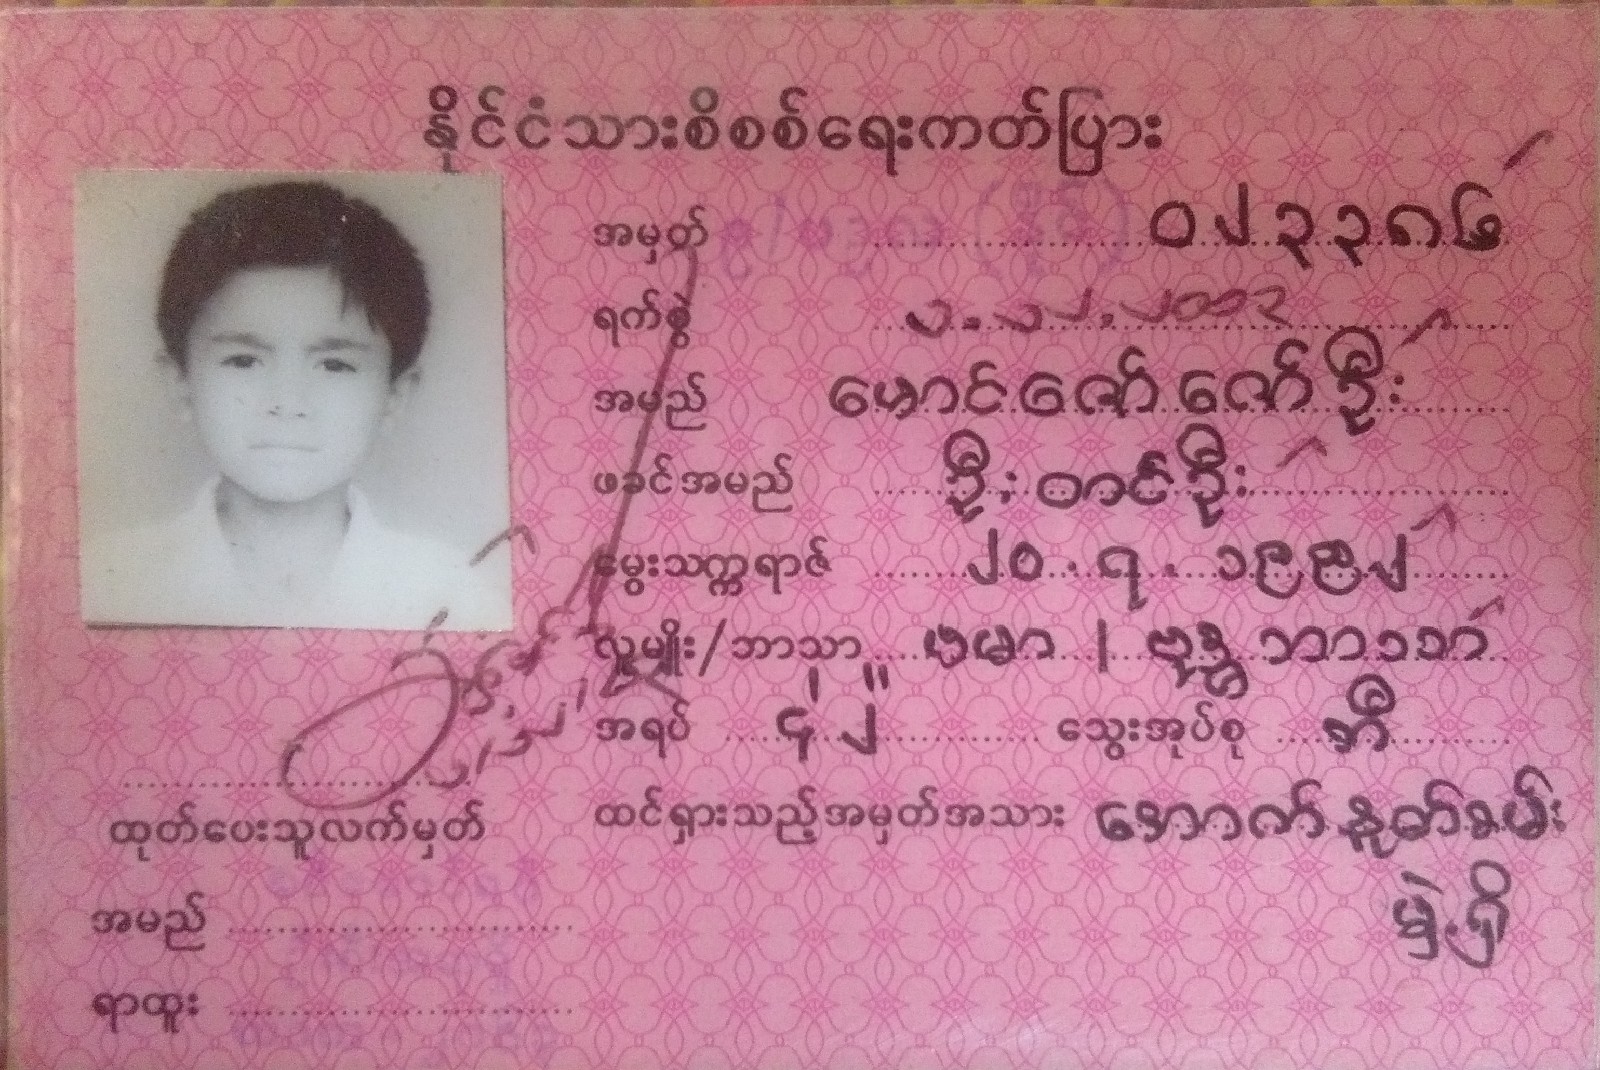 နိုင်ငံသားစိစစ်ရေးကတ်ပြား
အမှတ် ၉/မဒလ (နိုင်) ၀၂၃၃၈၆
ရက်စွဲ
အမည် မောင်ဇော်ဇော်ဦး
ဖခင်အမည် ဦးတင်ဦး
မွေးသက္ကရာဇ် ၂၀.၇.၁၉၉၂
လူမျိုး/ဘာသာ ဗမာ / ဗုဒ္ဓဘာသာ
အရပ် ၄' ၂" သွေးအုပ်စု ဘီ
ထင်ရှားသည့်အမှတ်အသား အောက်နှုတ်ခမ်း
မှဲ့ရှိ
ထုတ်ပေးသူလက်မှတ်
အမည်
ရာထူး